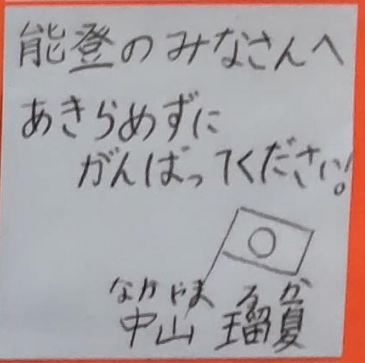 能登のみなさんへ
あきらめずに
がんばってください!
なかやま るか
中山 瑠夏